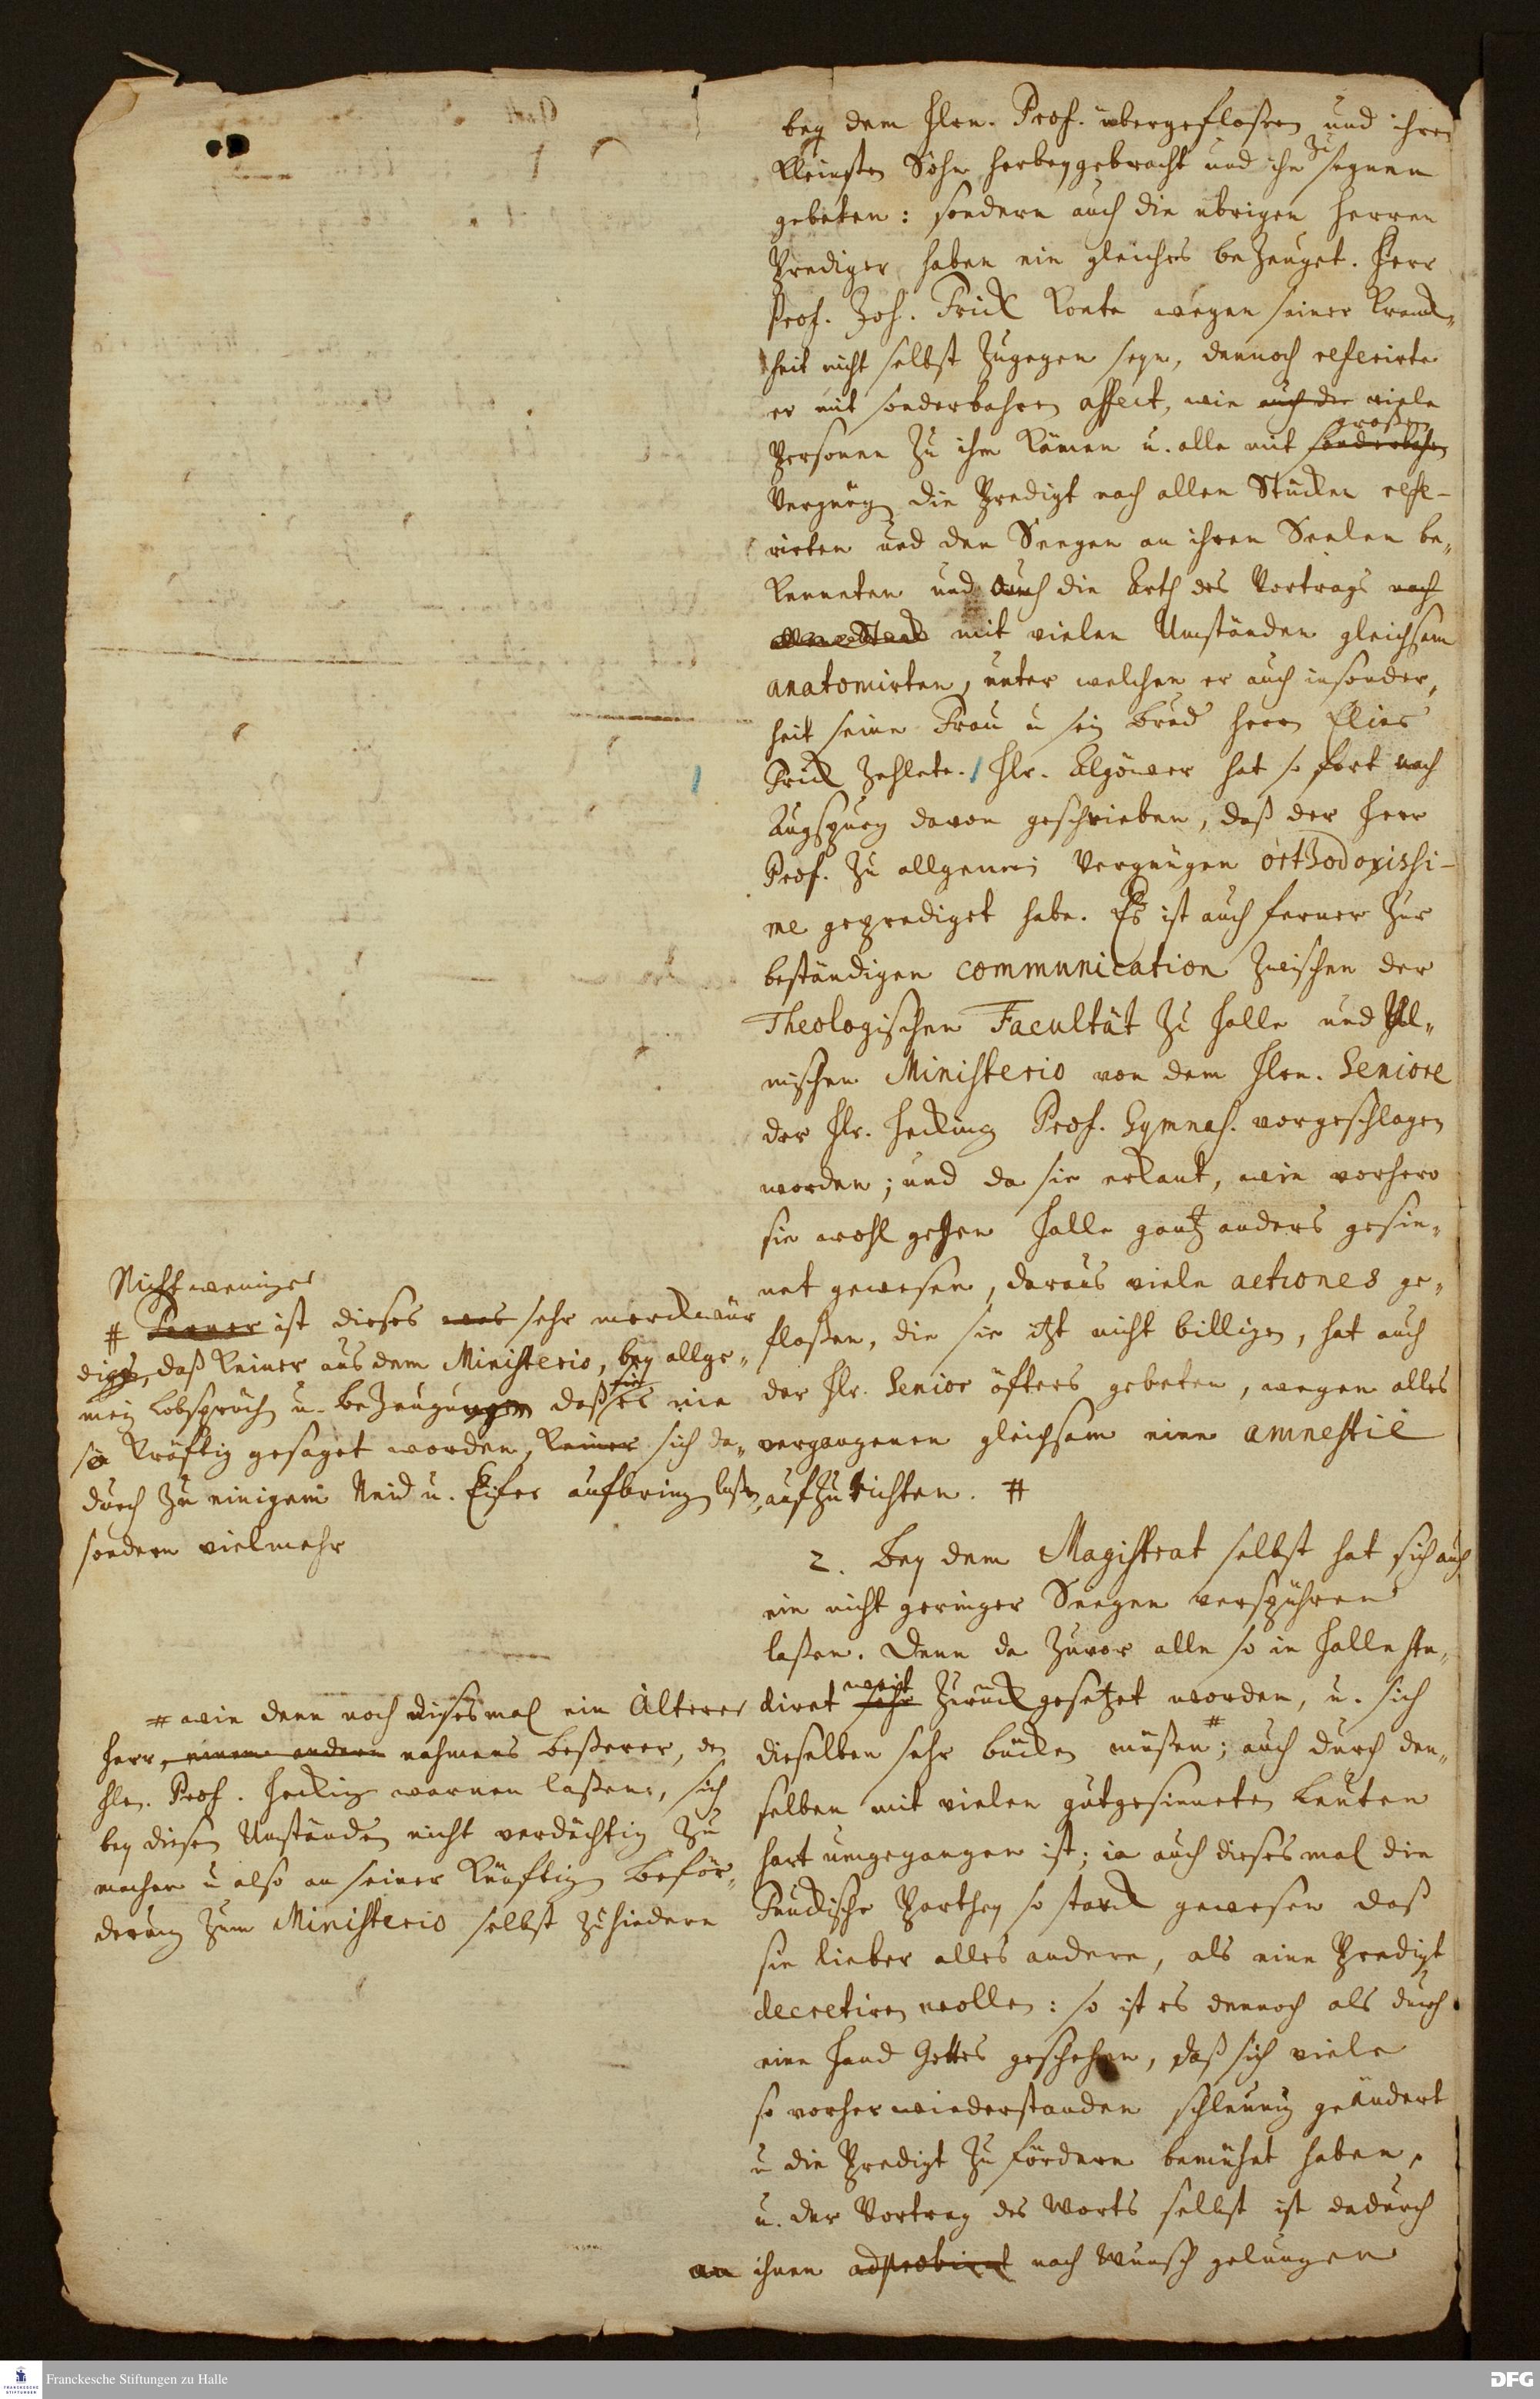 bey dem Hrn. Prof. übergefloßen und ihren
kleinsten Sohn herbeygebracht und ihn zu segnen
gebeten: sondern auch die übrigen Herren
Prediger haben ein gleiches bezeuget. Herr
Prof. Joh. Frick konte wegen seiner Kranck-
heit nicht selbst zugegen seyn, dennoch referirte
er mit sonderbahren affect, wie auch die viele
großen
Personen zu ihm kämen u. alle mit sonderbahren
Vergnüg. die Predigt nach allen Stücken refe-
rirten und den Seegen an ihren Seelen be-
kenneten und auch die Arth des Vortrags nach
mit vielen Umständen gleichsam
anatomirten, unter welchen er auch insonder-
heit seine Frau u sein Brud Herrn Elias
Frick zehlete. Hr. Algöwer hat so fort nach
Augspurg davon geschrieben, daß der Herr
Prof. zu allgemein Vergnügen orthodoxissi-
me geprediget habe. Es ist auch ferner zur
beständigen communication zwischen der
Theologischen Facultät zu Halle und Ul-
mischen Ministerio von dem Hrn. Seniore
der Hr. Hecking Prof. Gymnas. vorgeschlagen
worden; und da sie erkant, wie vorhero
sie wohl gegen Halle gantz anders gesin-
net gewesen, daraus viele actiones ge-
floßen, die sie itzt nicht billigen, hat auch
der Hr. Senior öfters gebeten, wegen alles
vergangenen gleichsam eine amnestie
aufzurichten. #
2. Bey dem Magistrat selbst hat sich auch
ein nicht geringer Seegen verspühren
laßen. Denn da zuvor alle so in Halle stu-
weit
diret sehr zurück gesetzet worden, u. sich
dieselben sehr bücken müßen #; auch durch den-
selben mit vielen gutgesinneten Leuten
hart umgegangen ist; ia auch dieses mal die
Parthey so starck gewesen daß
sie lieber alles andere, als eine Predigt
decretiren wollen: so ist es dennoch als durch
eine Hand Gottes geschehen, daß sich viele
so vorher wiederstanden schleunig geändert
u die Predigt zu fördern bemühet haben,
u. der Vortrag des Worts selbst ist dadurch
an ihnen nach Wunsch gelungen
Nicht weniger
# Ferner ist dieses was sehr merckwür
diges, daß keiner aus dem Ministerio, bey allge-
mein Lobsprüch u. Bezeugungen daß es nie
so kräftig gesaget worden, keiner sich da-
durch zu einigem Neid u. Eifer aufbring laßen,
sondern vielmehr
# wie denn noch dieses mal ein Älterer
Herr, einem andern nahmens Beßerer, den
Hrn. Prof. Hecking warnen laßen, sich
bey diesen Umständen nicht verdächtig zu
machen u also an seiner künftig Beför-
derung zum Ministerio selbst zu hindern
Franckesche Stiftungen zu Halle
DFG